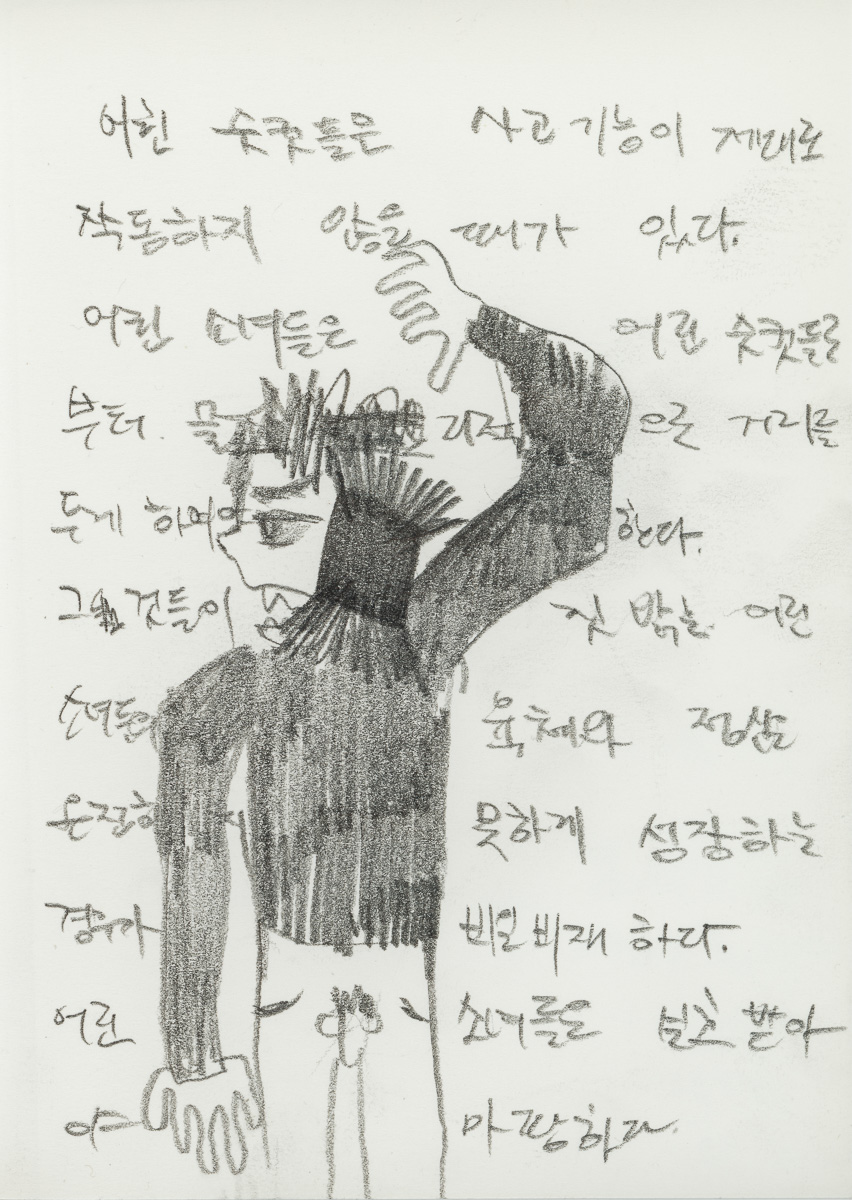 어린 숫컷들은 사고 기능이 제대로
작동하지 않을 때가 있다.
어린 소녀들은 어린 숫컷들로
부터 물리적으로 거리를
두게 하여야 한다.
그 것들이 짓 밟는 어린
소녀들 육체와 정신도
온전하 못하게 성장하는
경우가 비일비재 하다.
어린 보호 받아
야 마땅하다.